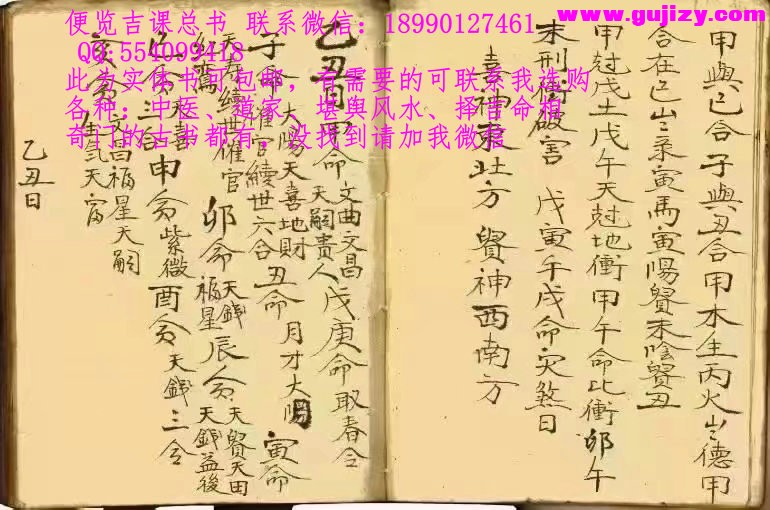 www.gujizy.com
便览吉课总书 联系微信：18990127461
QQ:554099418
此为实体书可包邮，有需要的可联系我选购
各种：中医、道家、堪舆风水、择吉命相
奇门的古书都有，没找到请加我微信
甲與己合子與丑合甲木生丙火岁德甲
合在己岁录寅馬寅陽貴未陰貴丑
甲尅戊土戊午天尅地衝甲午命北衝卯午
未刑衝破害 戊寅午戌命灾煞日
喜神東北方 貴神西南方
乙丑日 命 文曲文昌 天嗣贵人 戊庚命取春令
太陽天喜地財
子命 催官續世六合 丑命 月才大陽 寅命
續世催官 卯命 天錢福星 辰貪 天貴天田 天錢益後
三合 申貪 紫微 酉貪 天錢三合
亥貪 文昌福星天嗣 生氣天富
乙丑日